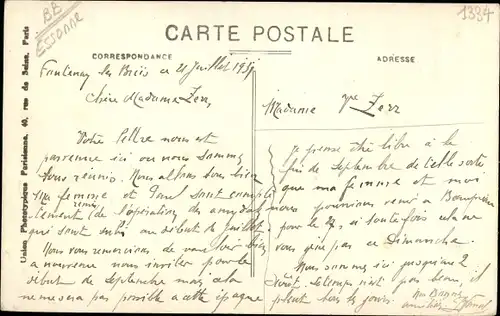 BE
ESSONNE
1334
CARTE POSTALE
CORRESPONDANCE
ADRESSE
Union Phototypique Parisienne, 40, rue de Seine, Paris
Fontenay les Briis ce 21 Juillet 19
Chère Madame Zerr,
Votre lettre nous est
parvenue ici ou nous sommes
tous réunis. Nous allons tous bien
Ma femme et Paul sont complè
tement remis (de l'opération des amygdales
qui sont subi au début de Juillet).
Nous vous remercions de vouloir bien
a nouveau nous inviter pour le
début de Septembre mais cela
ne me sera pas possible a cette époque
Madame Zerr
Je pense être libre à la
fin de Septembre de telle sorte
que ma femme et moi
nous pourrions venir a
le 27, si toutefois cela ne
vous gêne pas ce Dimanche.
Nous sommes ici jusqu'au 2
Août. Le temps n'est pas beau, il
pleut tous les jours.